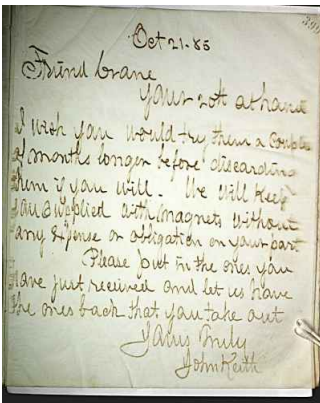 Oct 21-85
Friend Crane
Your 20th at hand
I wish you would try them a couple
of months longer before discarding
them if you will. We will keep
you supplied with magnets without
any expense or obligation on your part
Please put in the ones you
have just received and let us have
the ones back that you take out
Yours Truly
John Keith